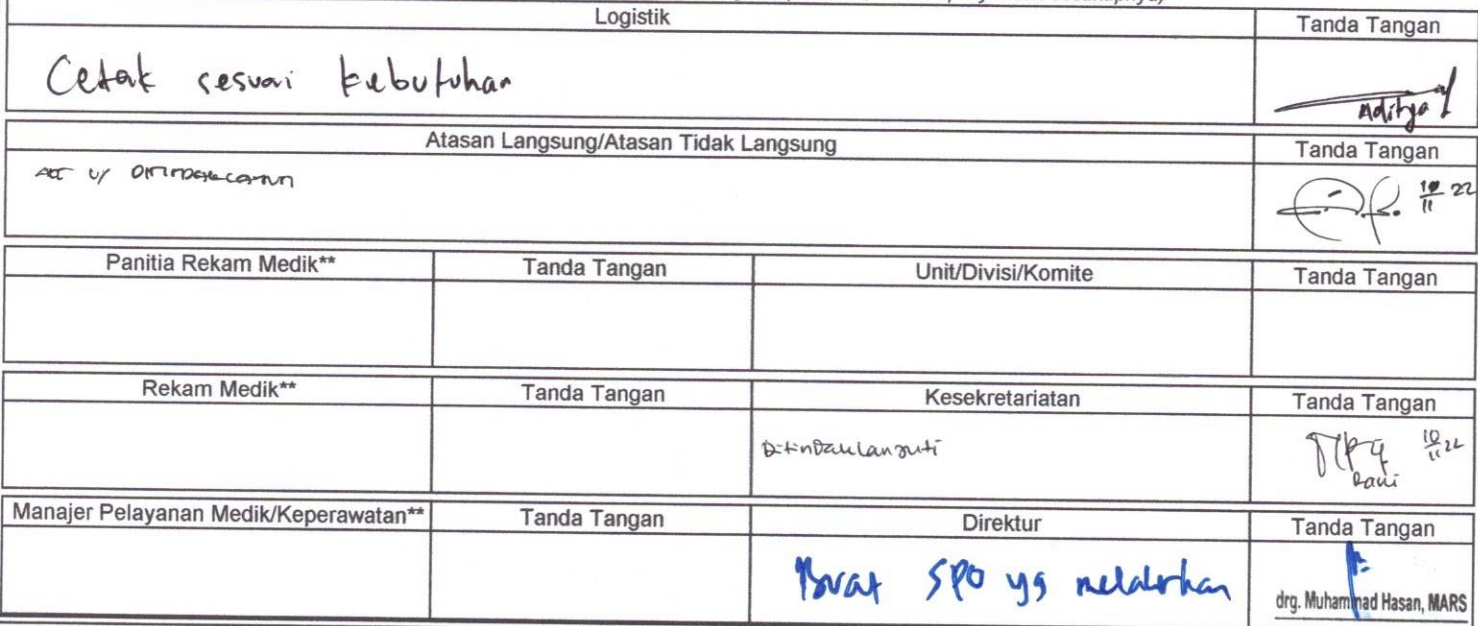 Logistik Tanda Tangan
Cetak sesuai kebutuhan
Aditya
Atasan Langsung/Atasan Tidak Langsung Tanda Tangan
ACC u/
10/11 22
Panitia Rekam Medik** Tanda Tangan Unit/Divisi/Komite Tanda Tangan
Rekam Medik** Tanda Tangan Kesekretariatan Tanda Tangan
Ditindaklanjuti
10/11 22
Manajer Pelayanan Medik/Keperawatan** Tanda Tangan Direktur Tanda Tangan
Buat SPO yg
drg. Muhammad Hasan, MARS